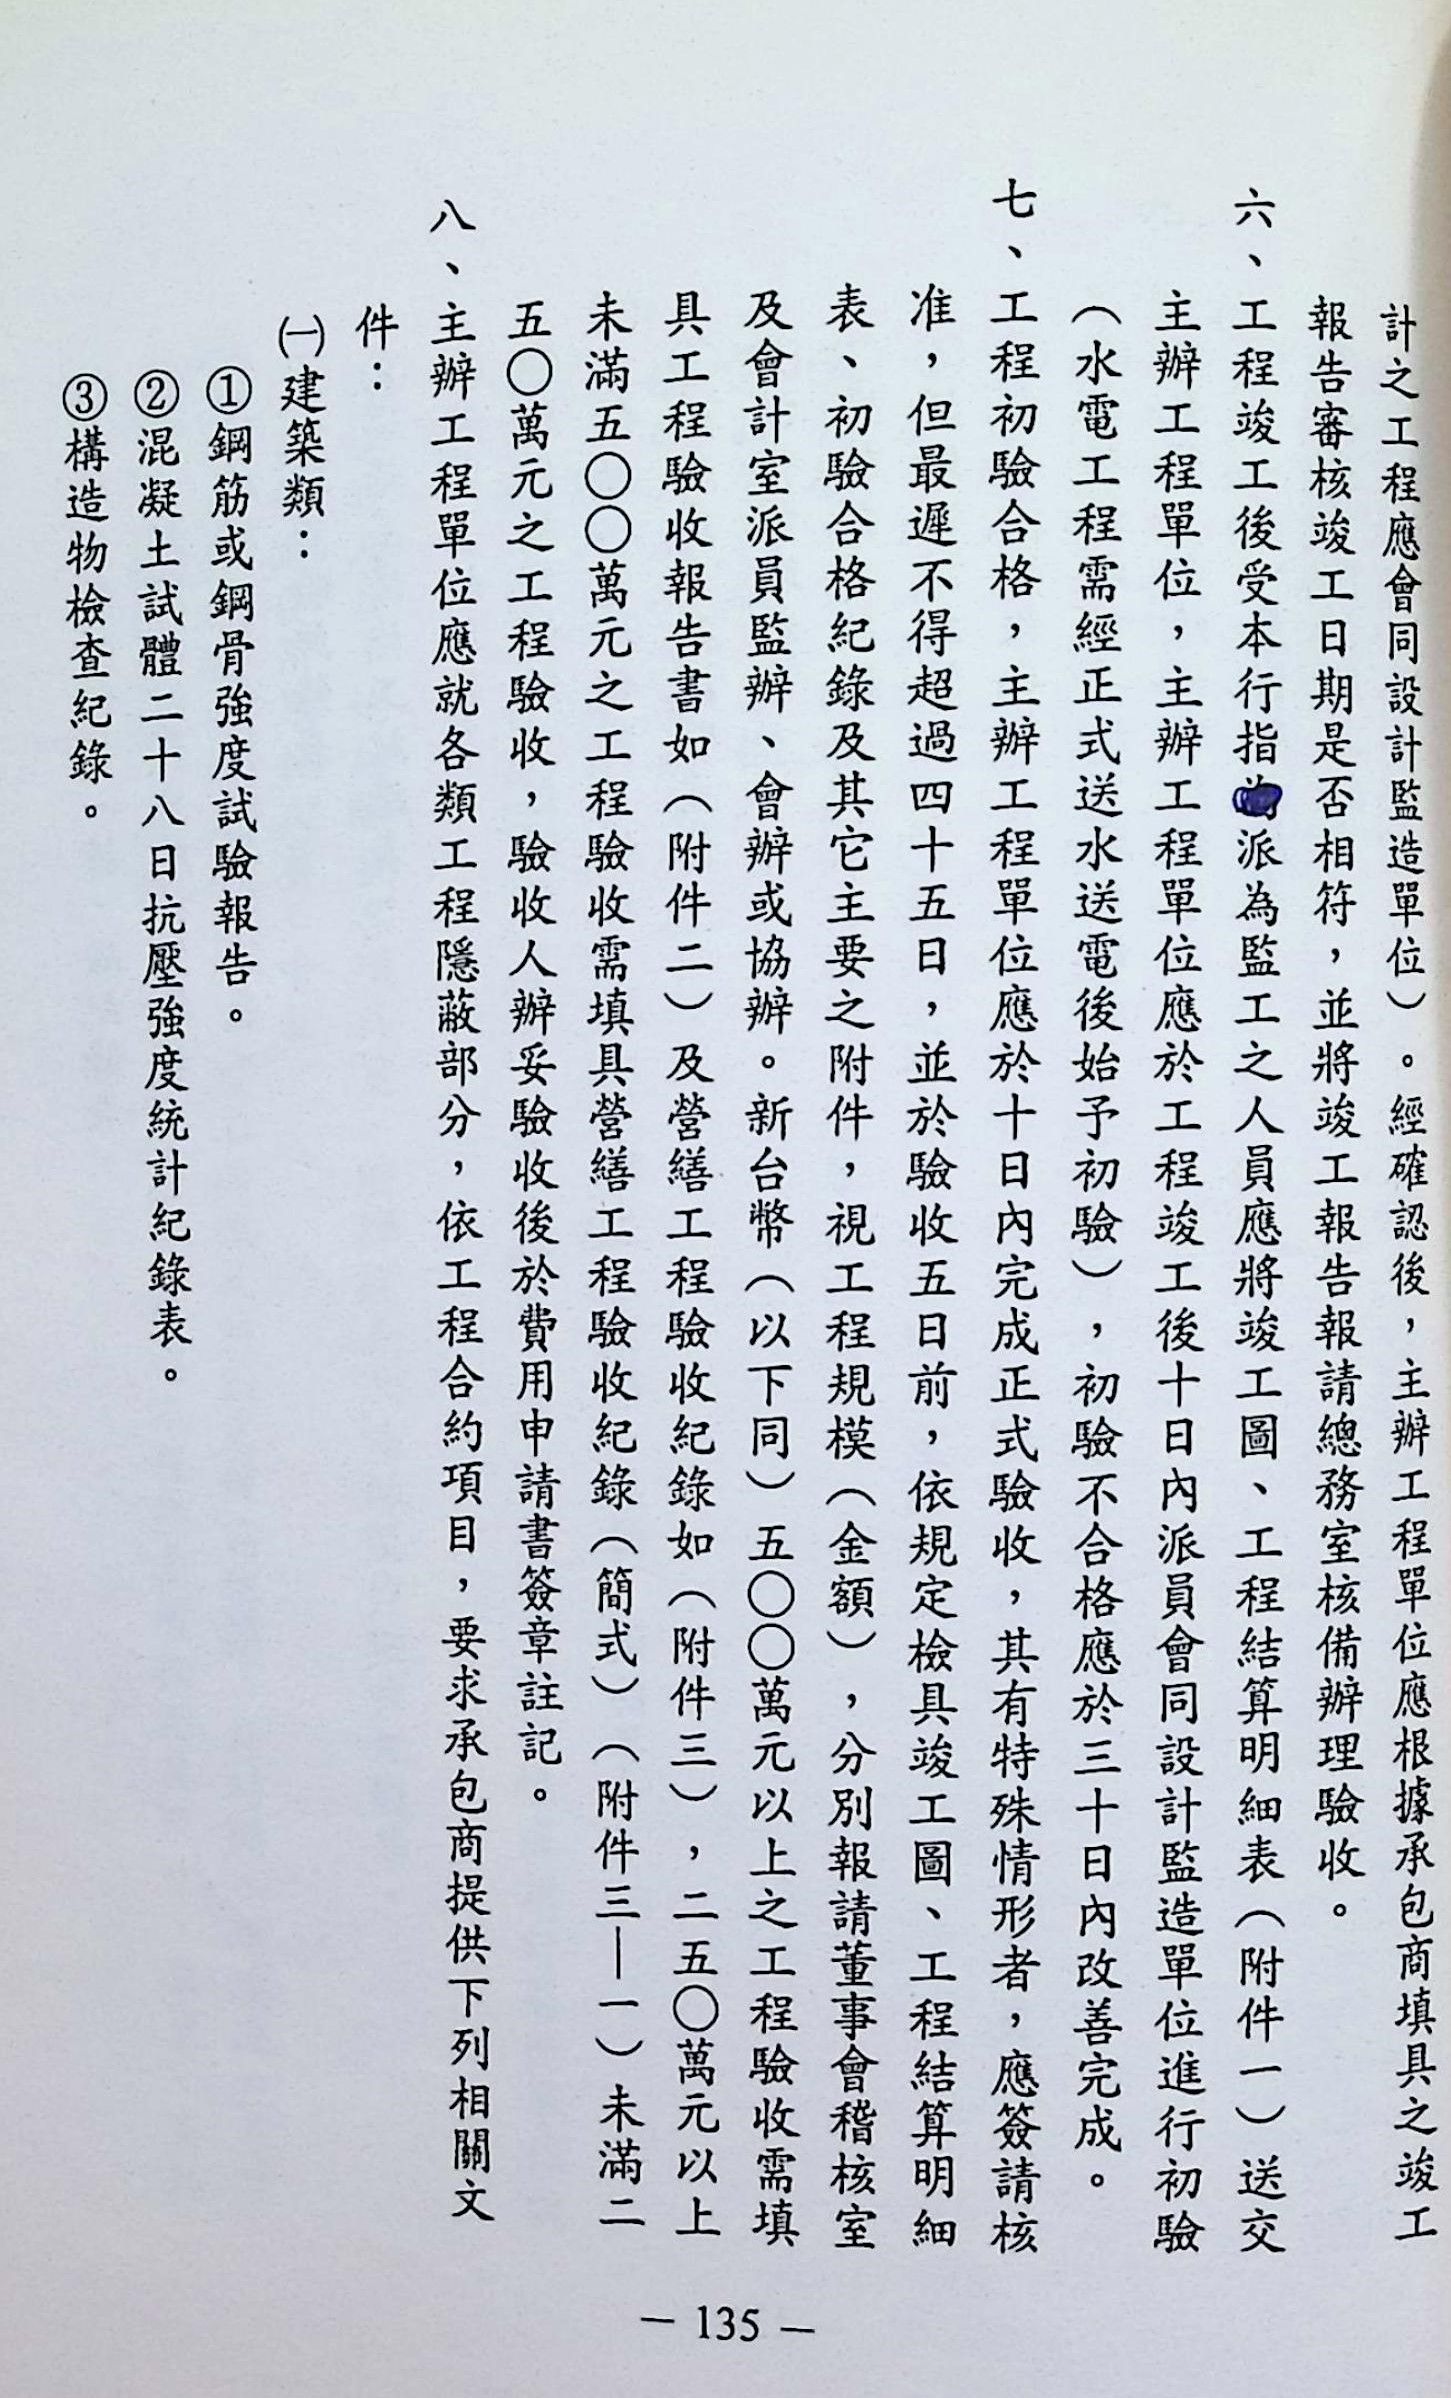 計之工程應會同設計監造單位）。經確認後，主辦工程單位應根據承包商填具之竣工
報告審核竣工日期是否相符，並將竣工報告報請總務室核備辦理驗收。
六、工程竣工後受本行指派為監工之人員應將竣工圖、工程結算明細表（附件一）送交
主辦工程單位，主辦工程單位應於工程竣工後十日內派員會同設計監造單位進行初驗
（水電工程需經正式送水送電後始予初驗），初驗不合格應於三十日內改善完成。
七、工程初驗合格，主辦工程單位應於十日內完成正式驗收，其有特殊情形者，應簽請核
准，但最遲不得超過四十五日，並於驗收五日前，依規定檢具竣工圖、工程結算明細
表、初驗合格紀錄及其它主要之附件，視工程規模（金額），分別報請董事會稽核室
及會計室派員監辦、會辦或協辦。新台幣（以下同）五〇〇萬元以上之工程驗收需填
具工程驗收報告書如（附件二）及營繕工程驗收紀錄如（附件三），二五〇萬元以上
未滿五〇〇萬元之工程驗收需填具營繕工程驗收紀錄（簡式）（附件三—一）未滿二
五〇萬元之工程驗收，驗收人辦妥驗收後於費用申請書簽章註記。
八、主辦工程單位應就各類工程隱蔽部分，依工程合約項目，要求承包商提供下列相關文
件：
㈠建築類：
①鋼筋或鋼骨強度試驗報告。
②混凝土試體二十八日抗壓強度統計紀錄表。
③構造物檢查紀錄。
— 135 —